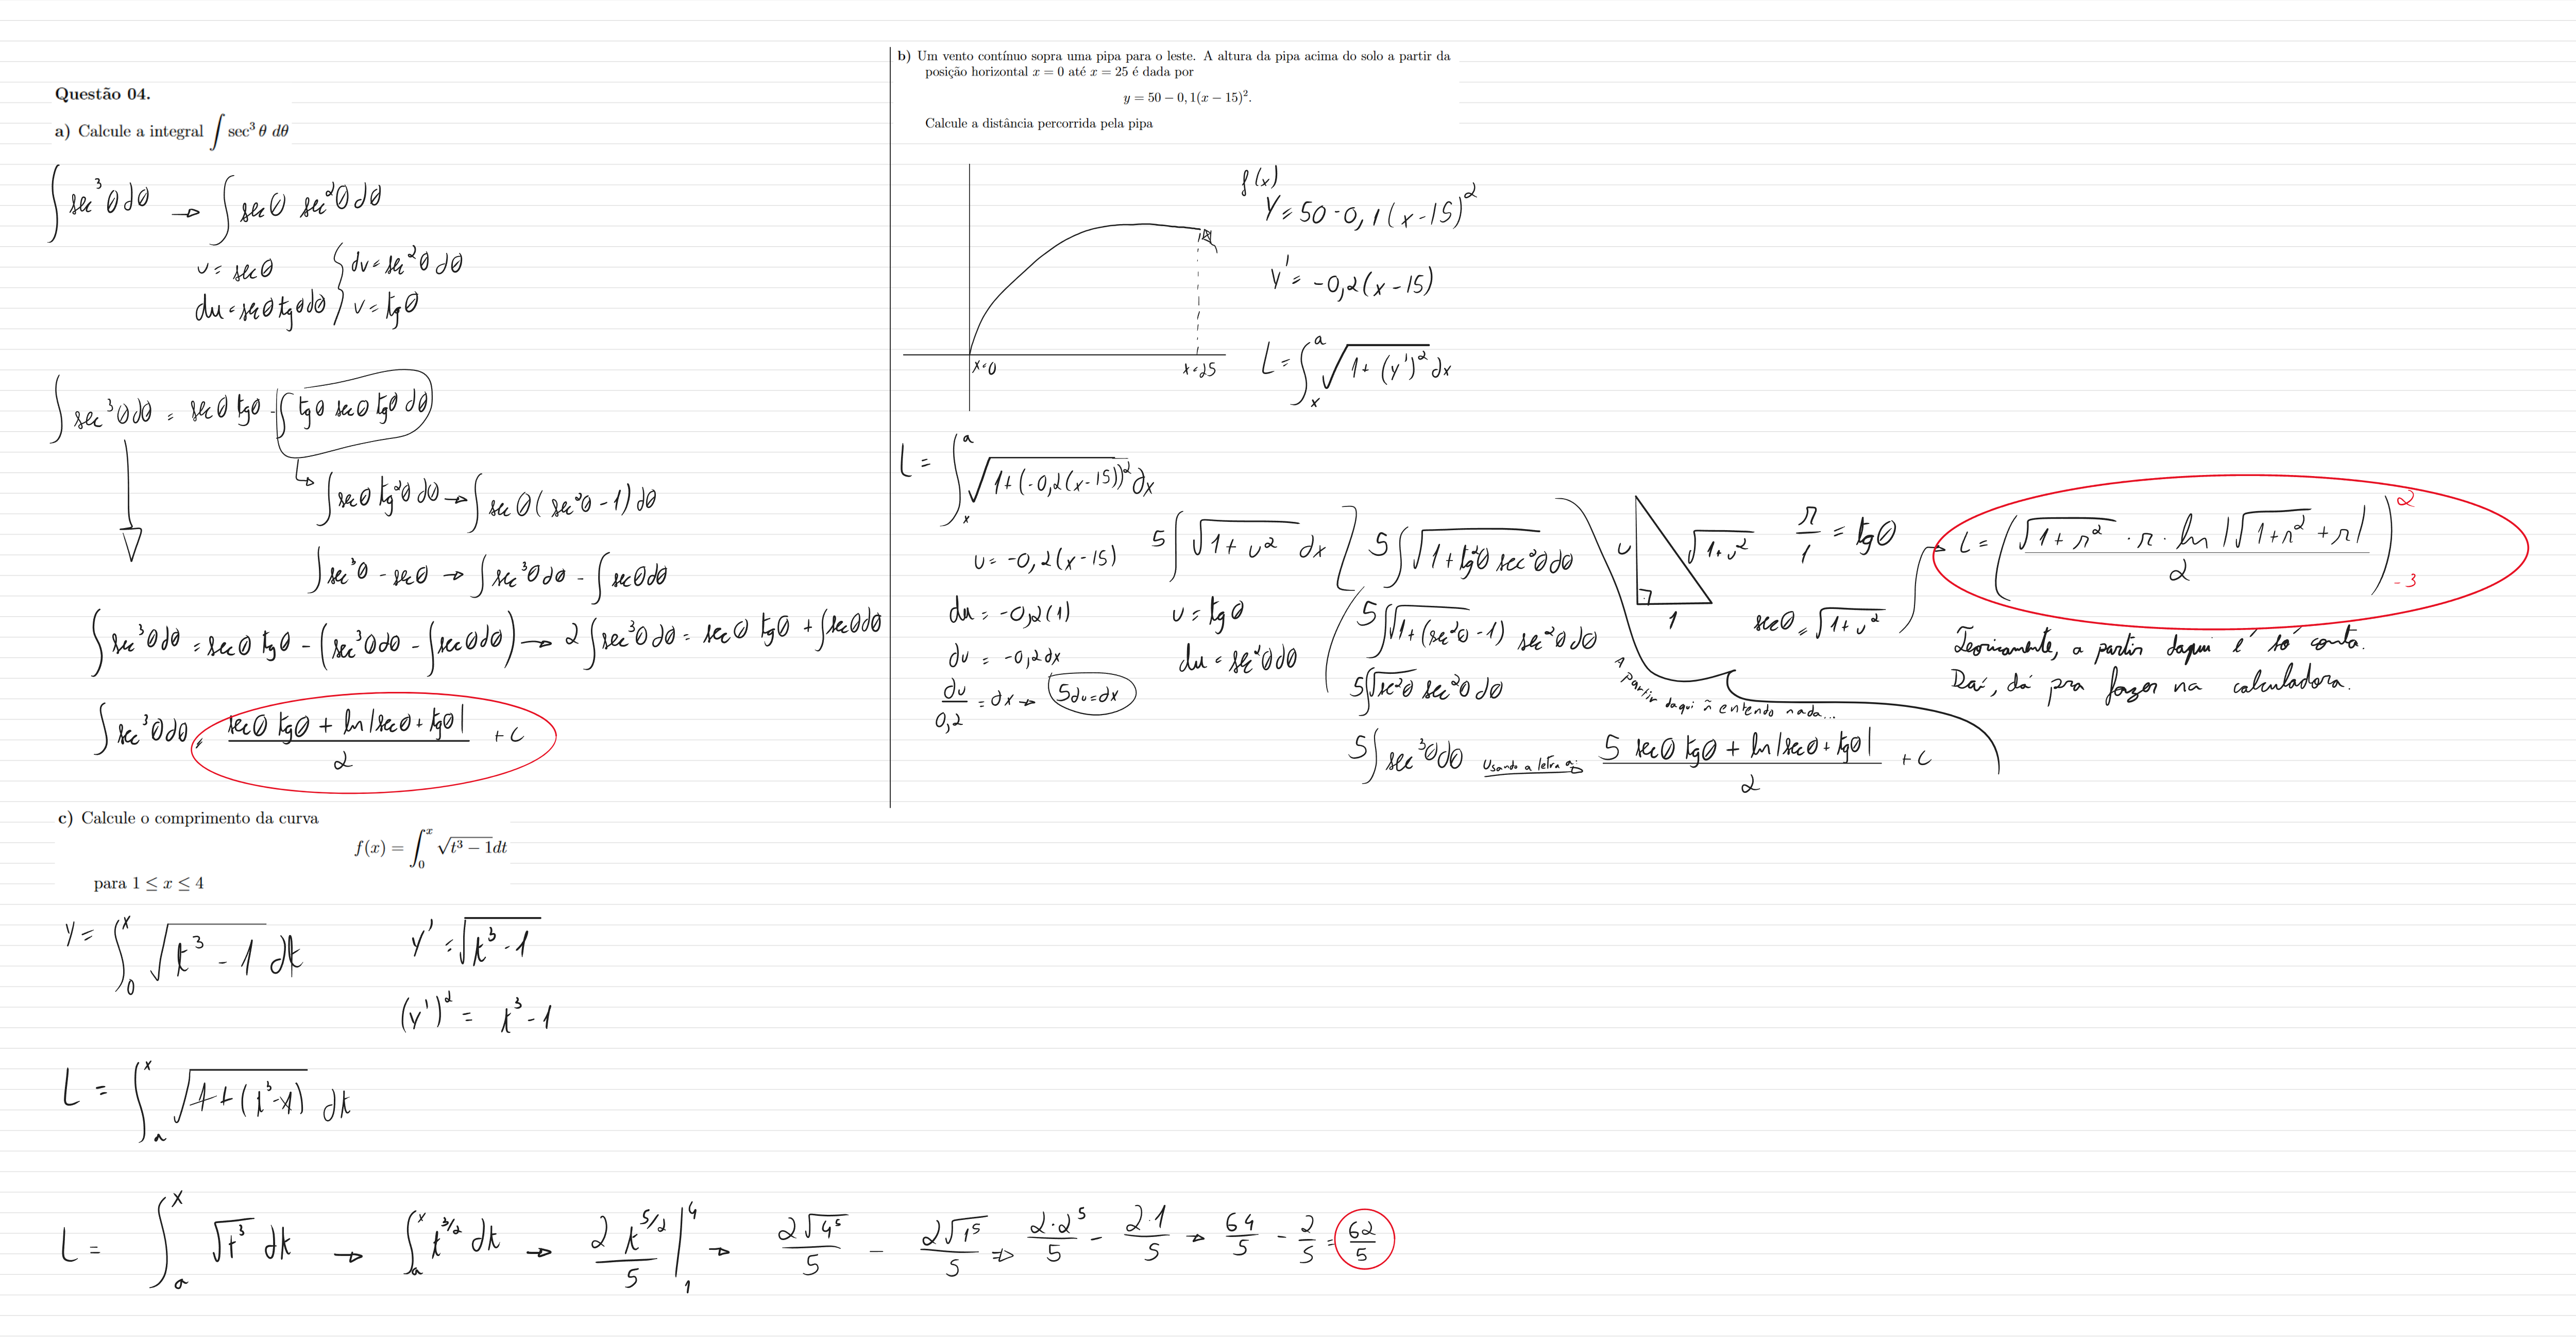 Questão 04.
a) Calcule a integral ∫ sec³ θ dθ
∫ sec³θ dθ → ∫ secθ sec²θ dθ
u = secθ { dv = sec²θ dθ
du = secθ tgθ dθ } v = tgθ
∫ sec³θ dθ = secθ tgθ - ∫ tgθ secθ tgθ dθ
↳ ∫ secθ tg²θ dθ → ∫ secθ (sec²θ - 1) dθ
∫ sec³θ - secθ → ∫ sec³θ dθ - ∫ secθ dθ
∫ sec³θ dθ = secθ tgθ - (sec³θ dθ - ∫ secθ dθ) → 2 ∫ sec³θ dθ = secθ tgθ + ∫ secθ dθ
∫ sec³θ dθ = (secθ tgθ + ln|secθ + tgθ|)/2 + C
b) Um vento contínuo sopra uma pipa para o leste. A altura da pipa acima do solo a partir da
posição horizontal x = 0 até x = 25 é dada por
y = 50 − 0, 1(x − 15)².
Calcule a distância percorrida pela pipa
x=0
x=25
f(x)
Y = 50 - 0,1(x-15)²
Y' = -0,2(x-15)
L = ∫ₓᵃ √(1+(y')²) dx
L = ∫ₓᵃ √(1+(-0,2(x-15))²) dx
u = -0,2(x-15)
du = -0,2(1)
du = -0,2dx
du/0,2 = dx → 5du=dx
5 ∫ √(1+u²) dx
u = tgθ
du = sec²θ dθ
5 ∫ √(1+tg²θ sec²θ dθ)
5 ∫ √(1+(sec²θ-1) sec²θ dθ
5 ∫ √(sec²θ) sec²θ dθ
5 ∫ sec³θ dθ Usando a letra a: → (5 secθ tgθ + ln|secθ + tgθ|)/2 + C
A partir daqui ñ entendo nada...
u
√(1+u²)
1
r/1 = tgθ
secθ = √(1+u²)
L = ((√(1+r²) · r · ln|√(1+r²) + r|)/2) 2 -3
Teoricamente, a partir daqui é só conta.
Daí, dá pra fazer na calculadora.
c) Calcule o comprimento da curva
f(x) = ∫₀ˣ √(t³ − 1)dt
para 1 ≤ x ≤ 4
Y = ∫₀ˣ √(t³ - 1) dt
Y' = √(t³ - 1)
(y')² = t³ - 1
L = ∫ₐˣ √(1+(t³-1)) dt
L = ∫ₐˣ √(t³) dt → ∫ₐˣ t^(3/2) dt → (2 t^(5/2))/5 |₁⁴ → 2√4⁵/5 - 2√1⁵/5 ⇒ 2·2⁵/5 - 2·1/5 → 64/5 - 2/5 = 62/5